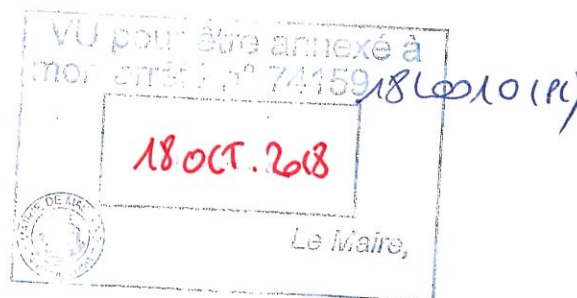 VU pour être annexé à
mon arrêté n° 74159 18L0010 (PC)
18 OCT. 2018
Le Maire,
MAIRIE DE